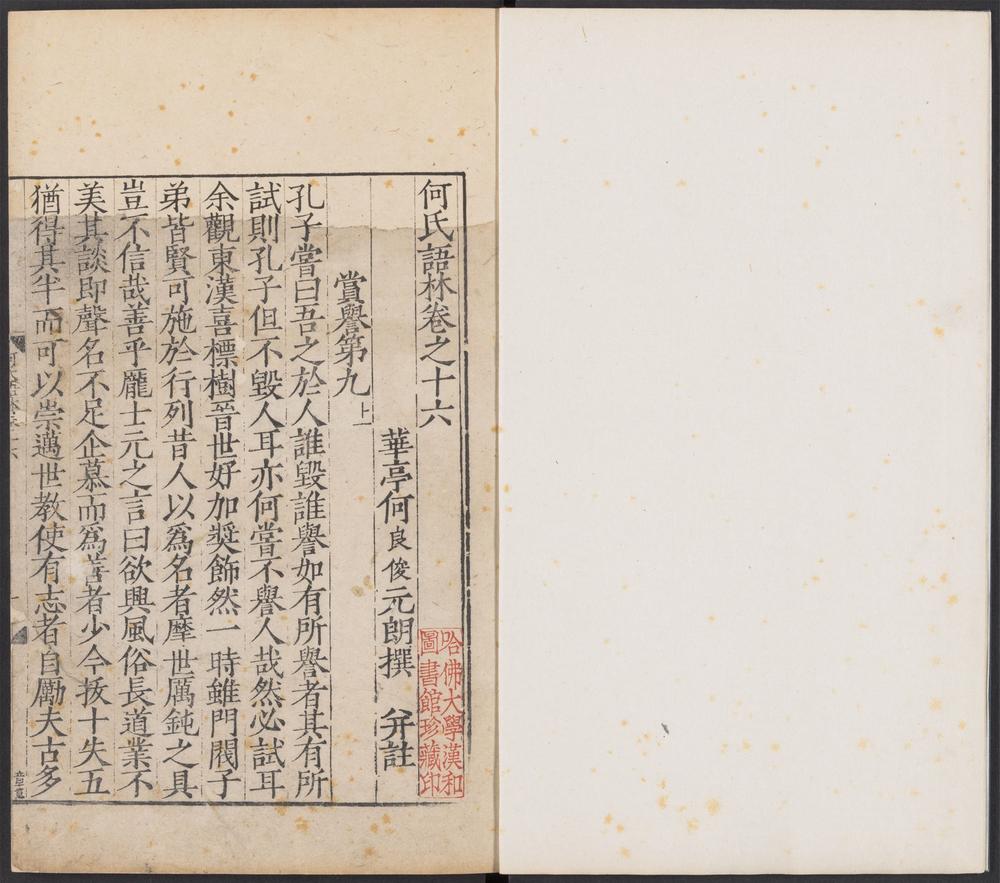 何氏語林卷之十六
哈佛大學漢和
圖書館珍藏印
華亭何良俊元朗撰 弁註
賞譽第九上
孔子嘗曰吾之於人誰毀誰譽如有所譽者其有所
試則孔子但不毀人耳亦何嘗不譽人哉然必試耳
余觀東漢喜標樹晉世好加奬飾然一時雖門閥子
弟皆賢可施於行列昔人以爲名者摩世厲鈍之具
豈不信哉善乎龐士元之言曰欲興風俗長道業不
美其談即聲名不足企慕而爲善者少今拔十失五
猶得其半而可以崇邁世教使有志者自勵夫古多